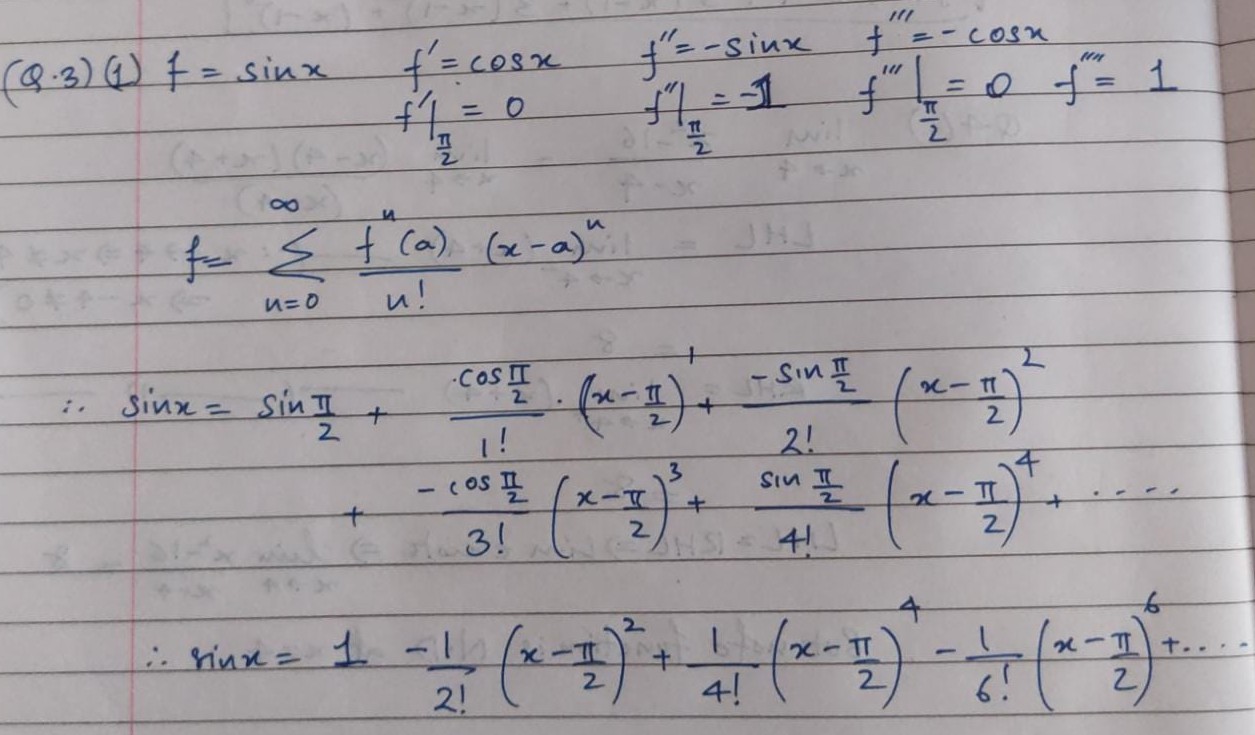 (Q.3)(1) f = sinx f' = cosx f'' = -sinx f''' = - cosx
f'|π/2 = 0 f''|π/2 = -1 f'''|π/2 = 0 f'''' = 1
f = ∞ Σ n=0 fⁿ(a)/n! (x-a)ⁿ
∴ sinx = sin π/2 + cos π/2 / 1! · (x - π/2)¹ + -sin π/2 / 2! (x - π/2)²
+ -cos π/2 / 3! (x - π/2)³ + sin π/2 / 4! (x - π/2)⁴ + ....
∴ sinx = 1 -1/2! (x - π/2)² + 1/4! (x - π/2)⁴ - 1/6! (x - π/2)⁶ + ....